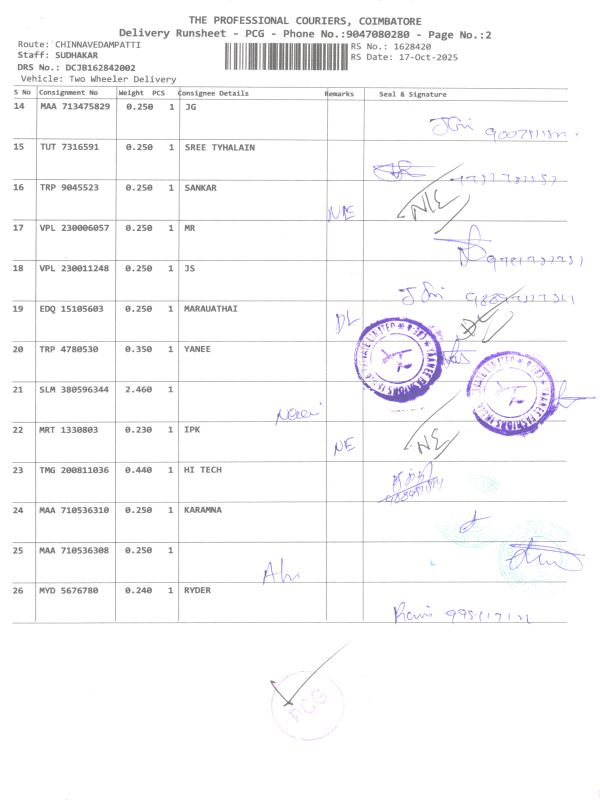 THE PROFESSIONAL COURIERS, COIMBATORE
Delivery Runsheet - PCG - Phone No.:9047080280 - Page No.:2
Route: CHINNAVEDAMPATTI RS No.: 1628420
Staff: SUDHAKAR RS Date: 17-Oct-2025
DRS No.: DCJB162842002
Vehicle: Two Wheeler Delivery
S No Consignment No Weight PCS Consignee Details Remarks Seal & Signature
14 MAA 713475829 0.250 1 JG
15 TUT 7316591 0.250 1 SREE TYHALAIN
16 TRP 9045523 0.250 1 SANKAR NE N/E
17 VPL 230006057 0.250 1 MR
18 VPL 230011248 0.250 1 JS
19 EDQ 15105603 0.250 1 MARAUATHAI DL
20 TRP 4780530 0.350 1 YANEE
21 SLM 380596344 2.460 1
22 MRT 1330803 0.230 1 IPK NE NE
23 TMG 200811036 0.440 1 HI TECH
24 MAA 710536310 0.250 1 KARAMNA
25 MAA 710536308 0.250 1
26 MYD 5676780 0.240 1 RYDER
PCG